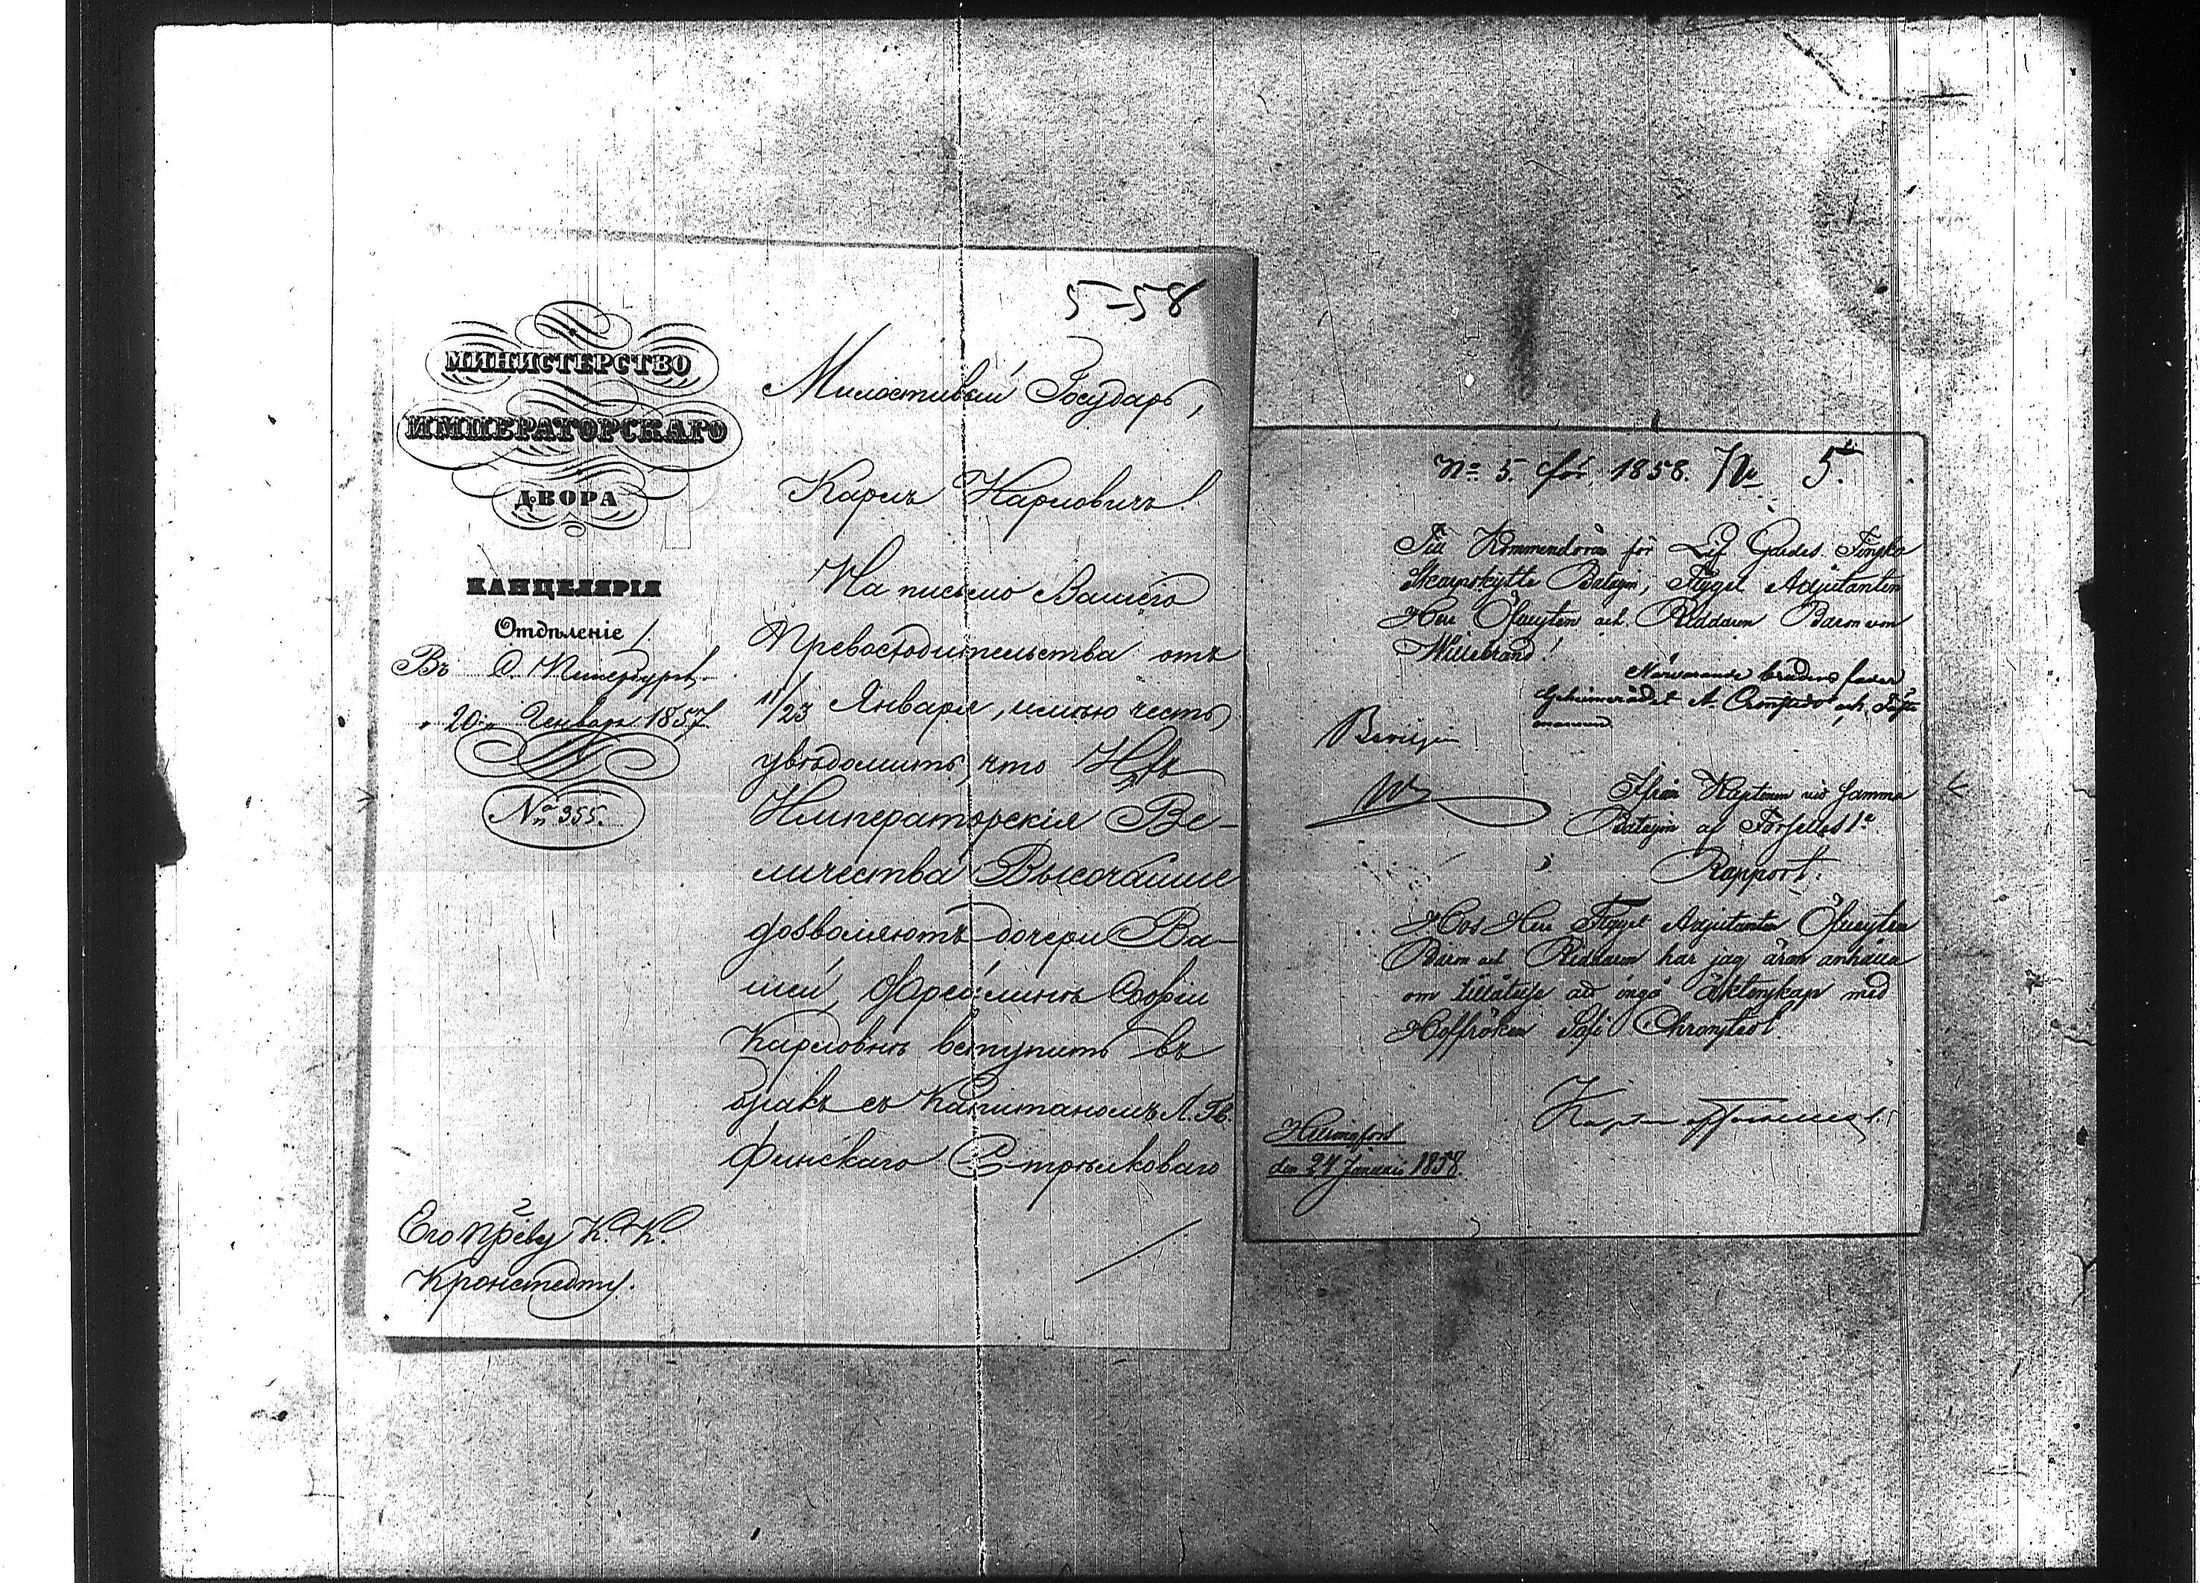 5-58
МИНИСТЕРСТВО
ИМПЕРАТОРСКАГО
ДВОРА
КАНЦЕЛЯРІЯ
Отдѣленіе 1.
Въ С. Петербургѣ
" 20го " Генваря 1857.
№ 355.
Милостивый Государь,
Карлъ Карловичъ!
На письмо Вашего
Превосходительства отъ
11/23 Января, имѣю честь
увѣдомить, что Ихъ
Императорскія Ве-
личества Высочайше
дозволяютъ дочери Ва-
шей, Фрейлинѣ Софіи
Карловнѣ вступить въ
бракъ съ Капитаномъ Л. Гв.
Финскаго Стрѣлковаго
Его Прev­у К. К.
Кронстедту.
No 5. för 1858. No 5.
Till Kommendören för Lif Gardes Finska
Skarpskytte Bataljon, Flygel Adjutanten
Herr Öfversten och Riddaren Baron von
Willebrand!
Närvarande brudens fader
Geheimerådet
Bevisgin
Ifrån Kaptenen vid samma
Bataljon af Forselles 1:a
Rapport.
Hos Herr Flygel Adjutanten Öfversten
Baron och Riddaren har jag äran anhålla
om tillåtelse att ingå äktenskap med
Hoffröken Sofi Chronstedt.
Helsingfors
den 24 Januari 1858.